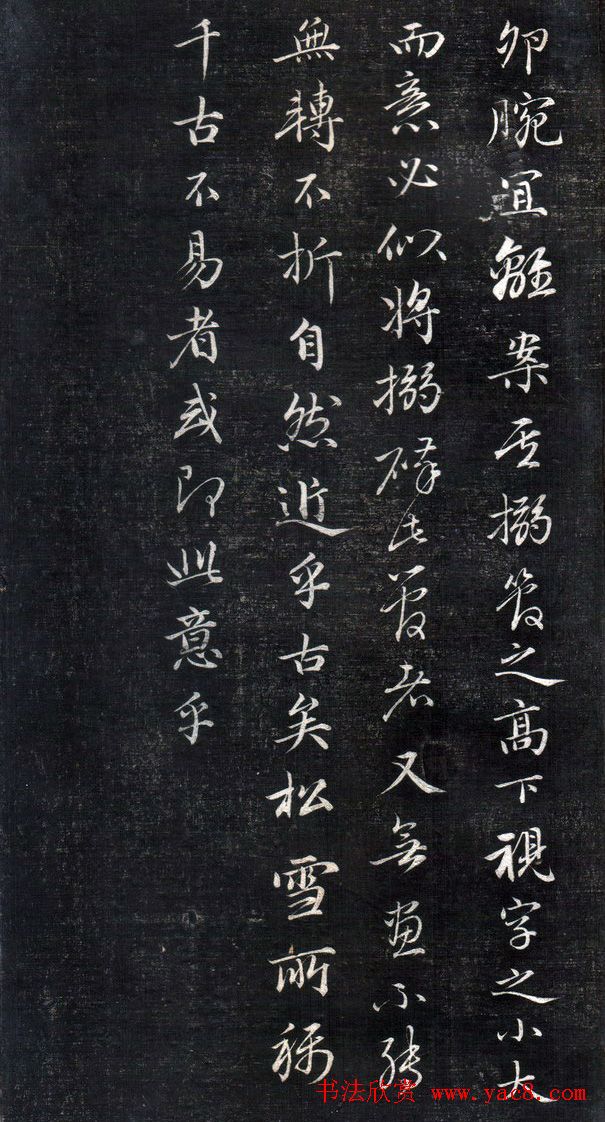 腕宜離案其搦管之高下視字之小大
而意必似将搦碎此管者又無畫不轉
無轉不折自然近乎古矣松雪所稱
千古不易者或即此意乎
书法欣赏 www.yac8.com